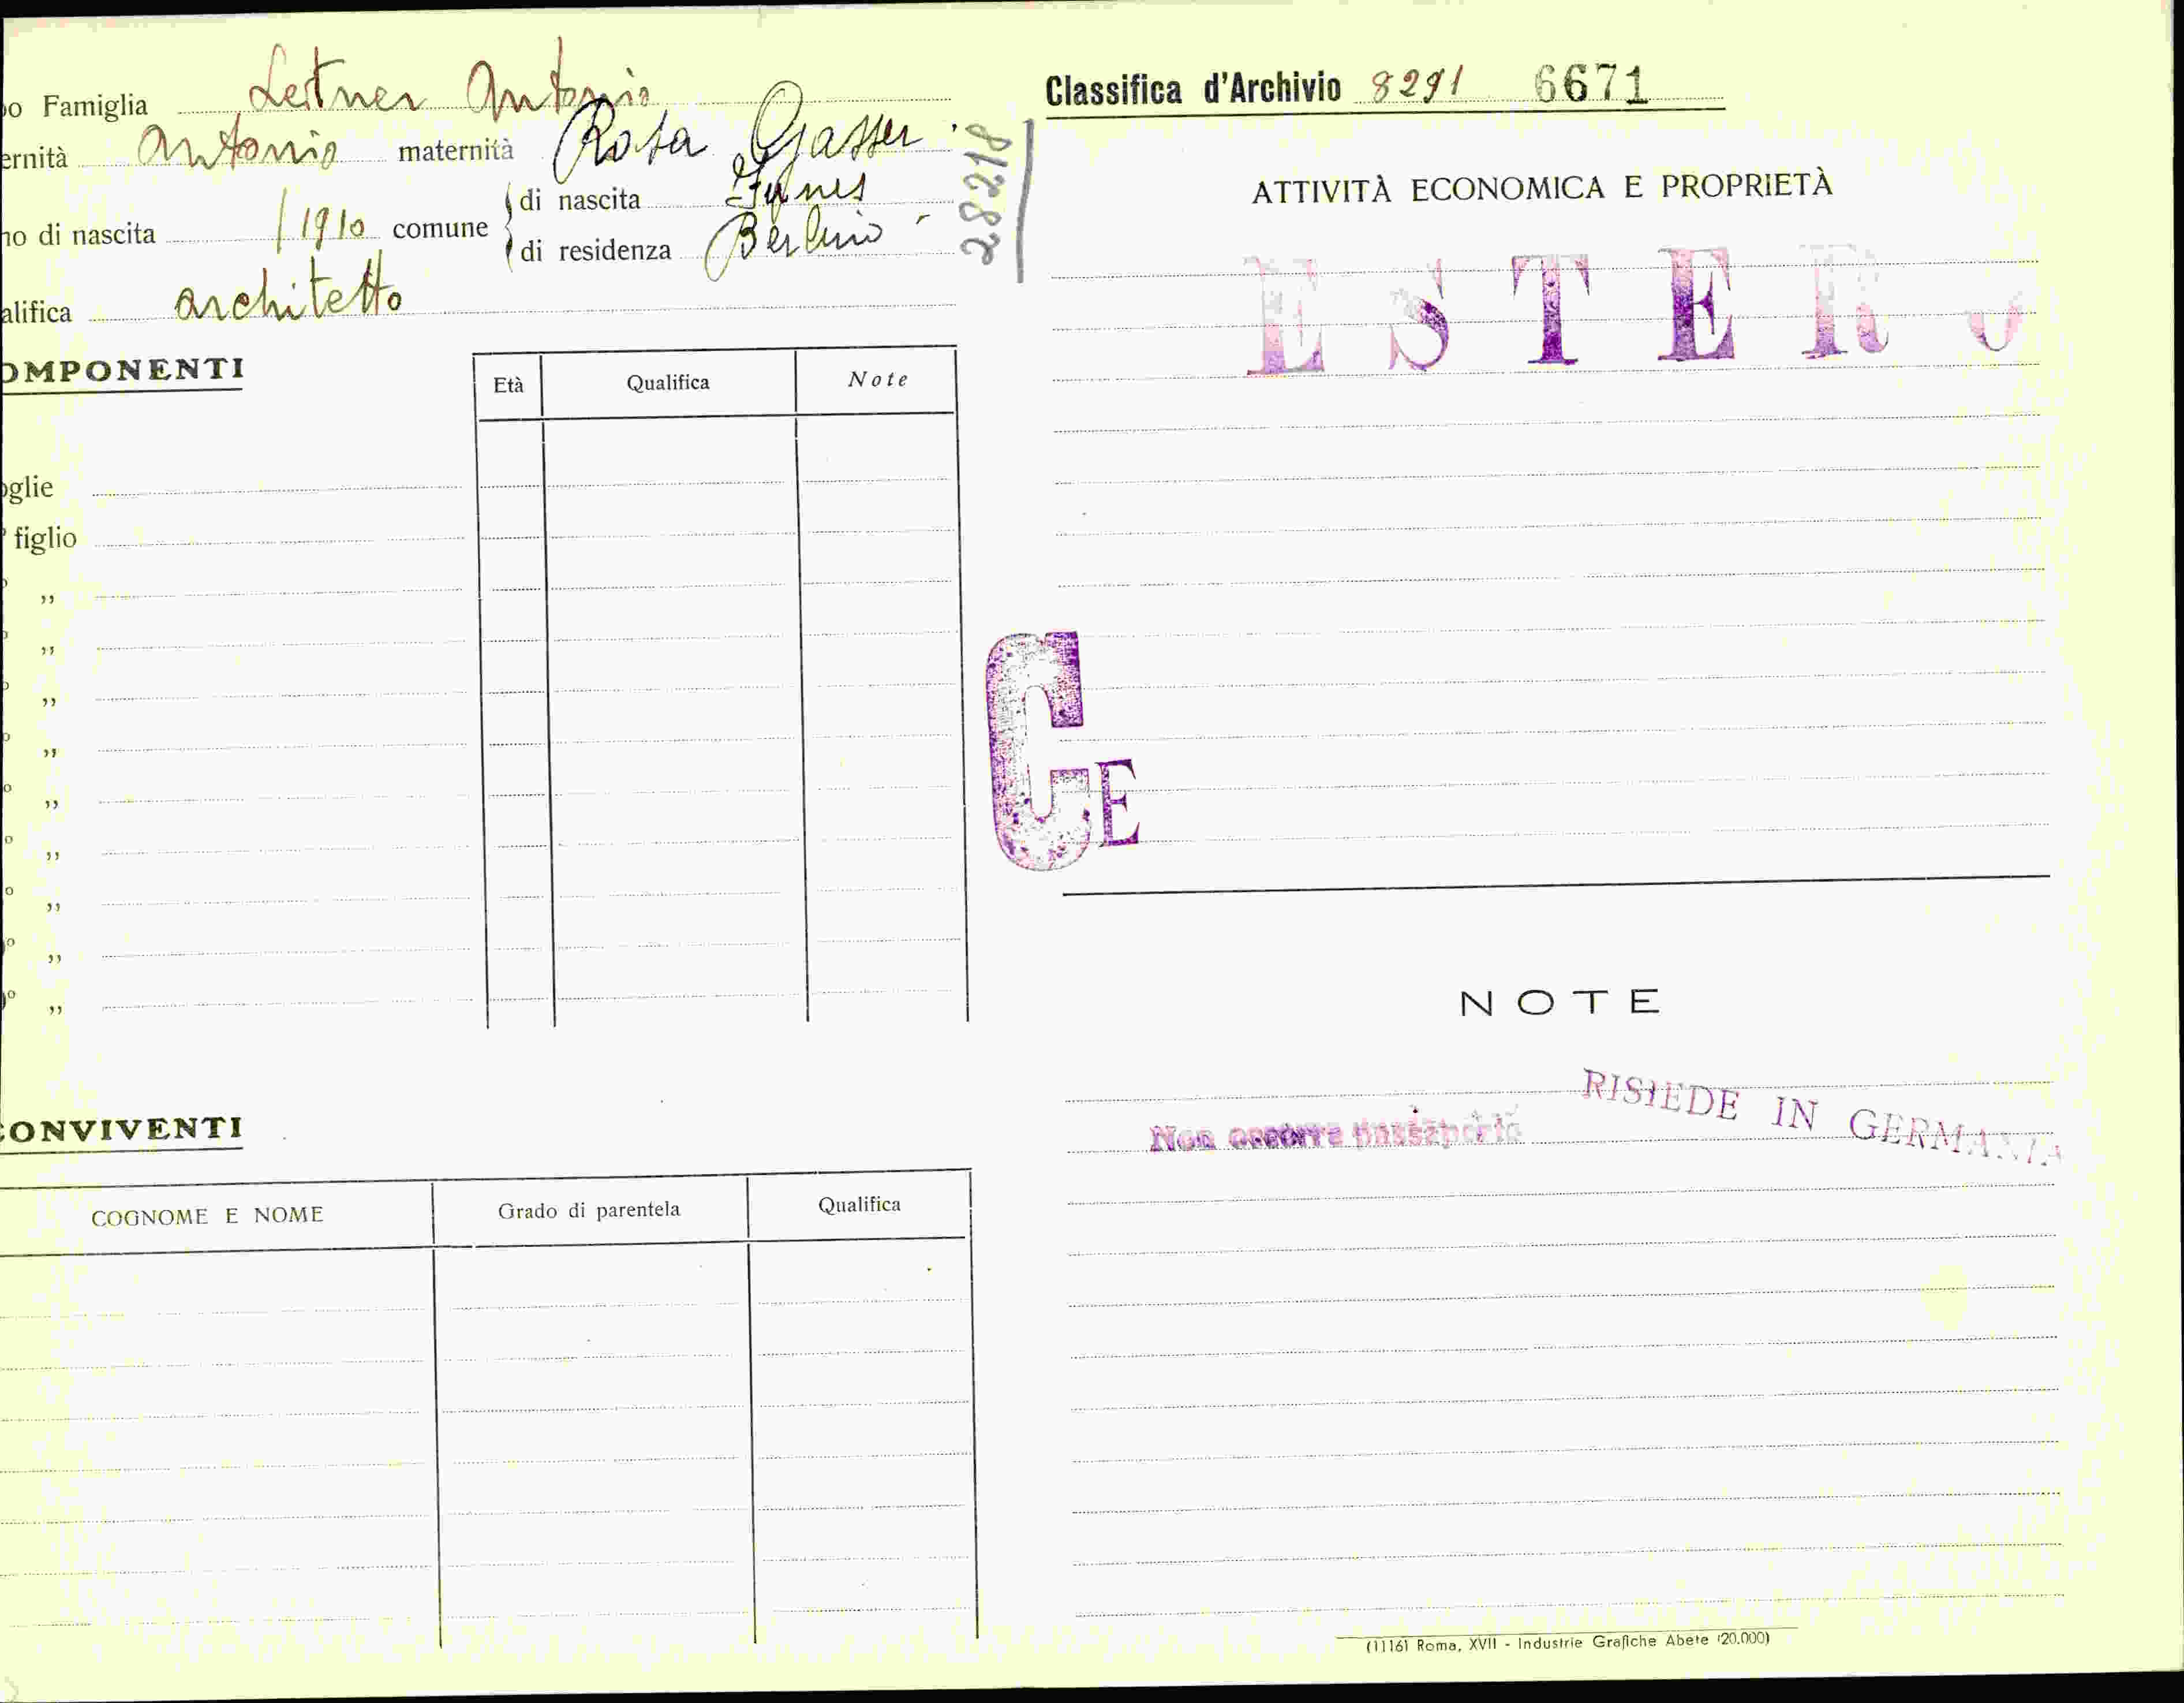 o Famiglia Leitner Antonio
ernità Antonio maternità Rosa Gasser
no di nascita / 1910 comune di nascita
di residenza Berlino
alifica architetto
28218
OMPONENTI
Età Qualifica Note
oglie
figlio
„
„
„
„
„
„
„
„
„
ONVIVENTI
COGNOME E NOME Grado di parentela Qualifica
Classifica d'Archivio 8291 6671
ATTIVITÀ ECONOMICA E PROPRIETÀ
ESTERO
CE
NOTE
RISIEDE IN GERMANIA
Non occorre passaporto
(11161 Roma, XVII - Industrie Grafiche Abete (20.000)